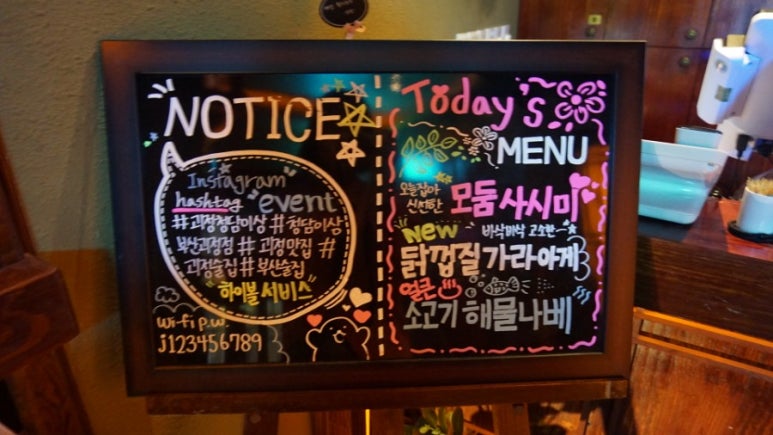 NOTICE
Instagram
hashtag "event"
#괴정청담이상 #청담이상
부산괴정점 #괴정맛집 #
괴정술집 #부산술집
"하이볼 서비스"
wi-fi p.w.
j123456789
Today's
MENU
오늘잡아
신선한 모둠 사시미
New 바삭바삭 고소한~
닭껍질 가라아게
얼큰
소고기 해물나베